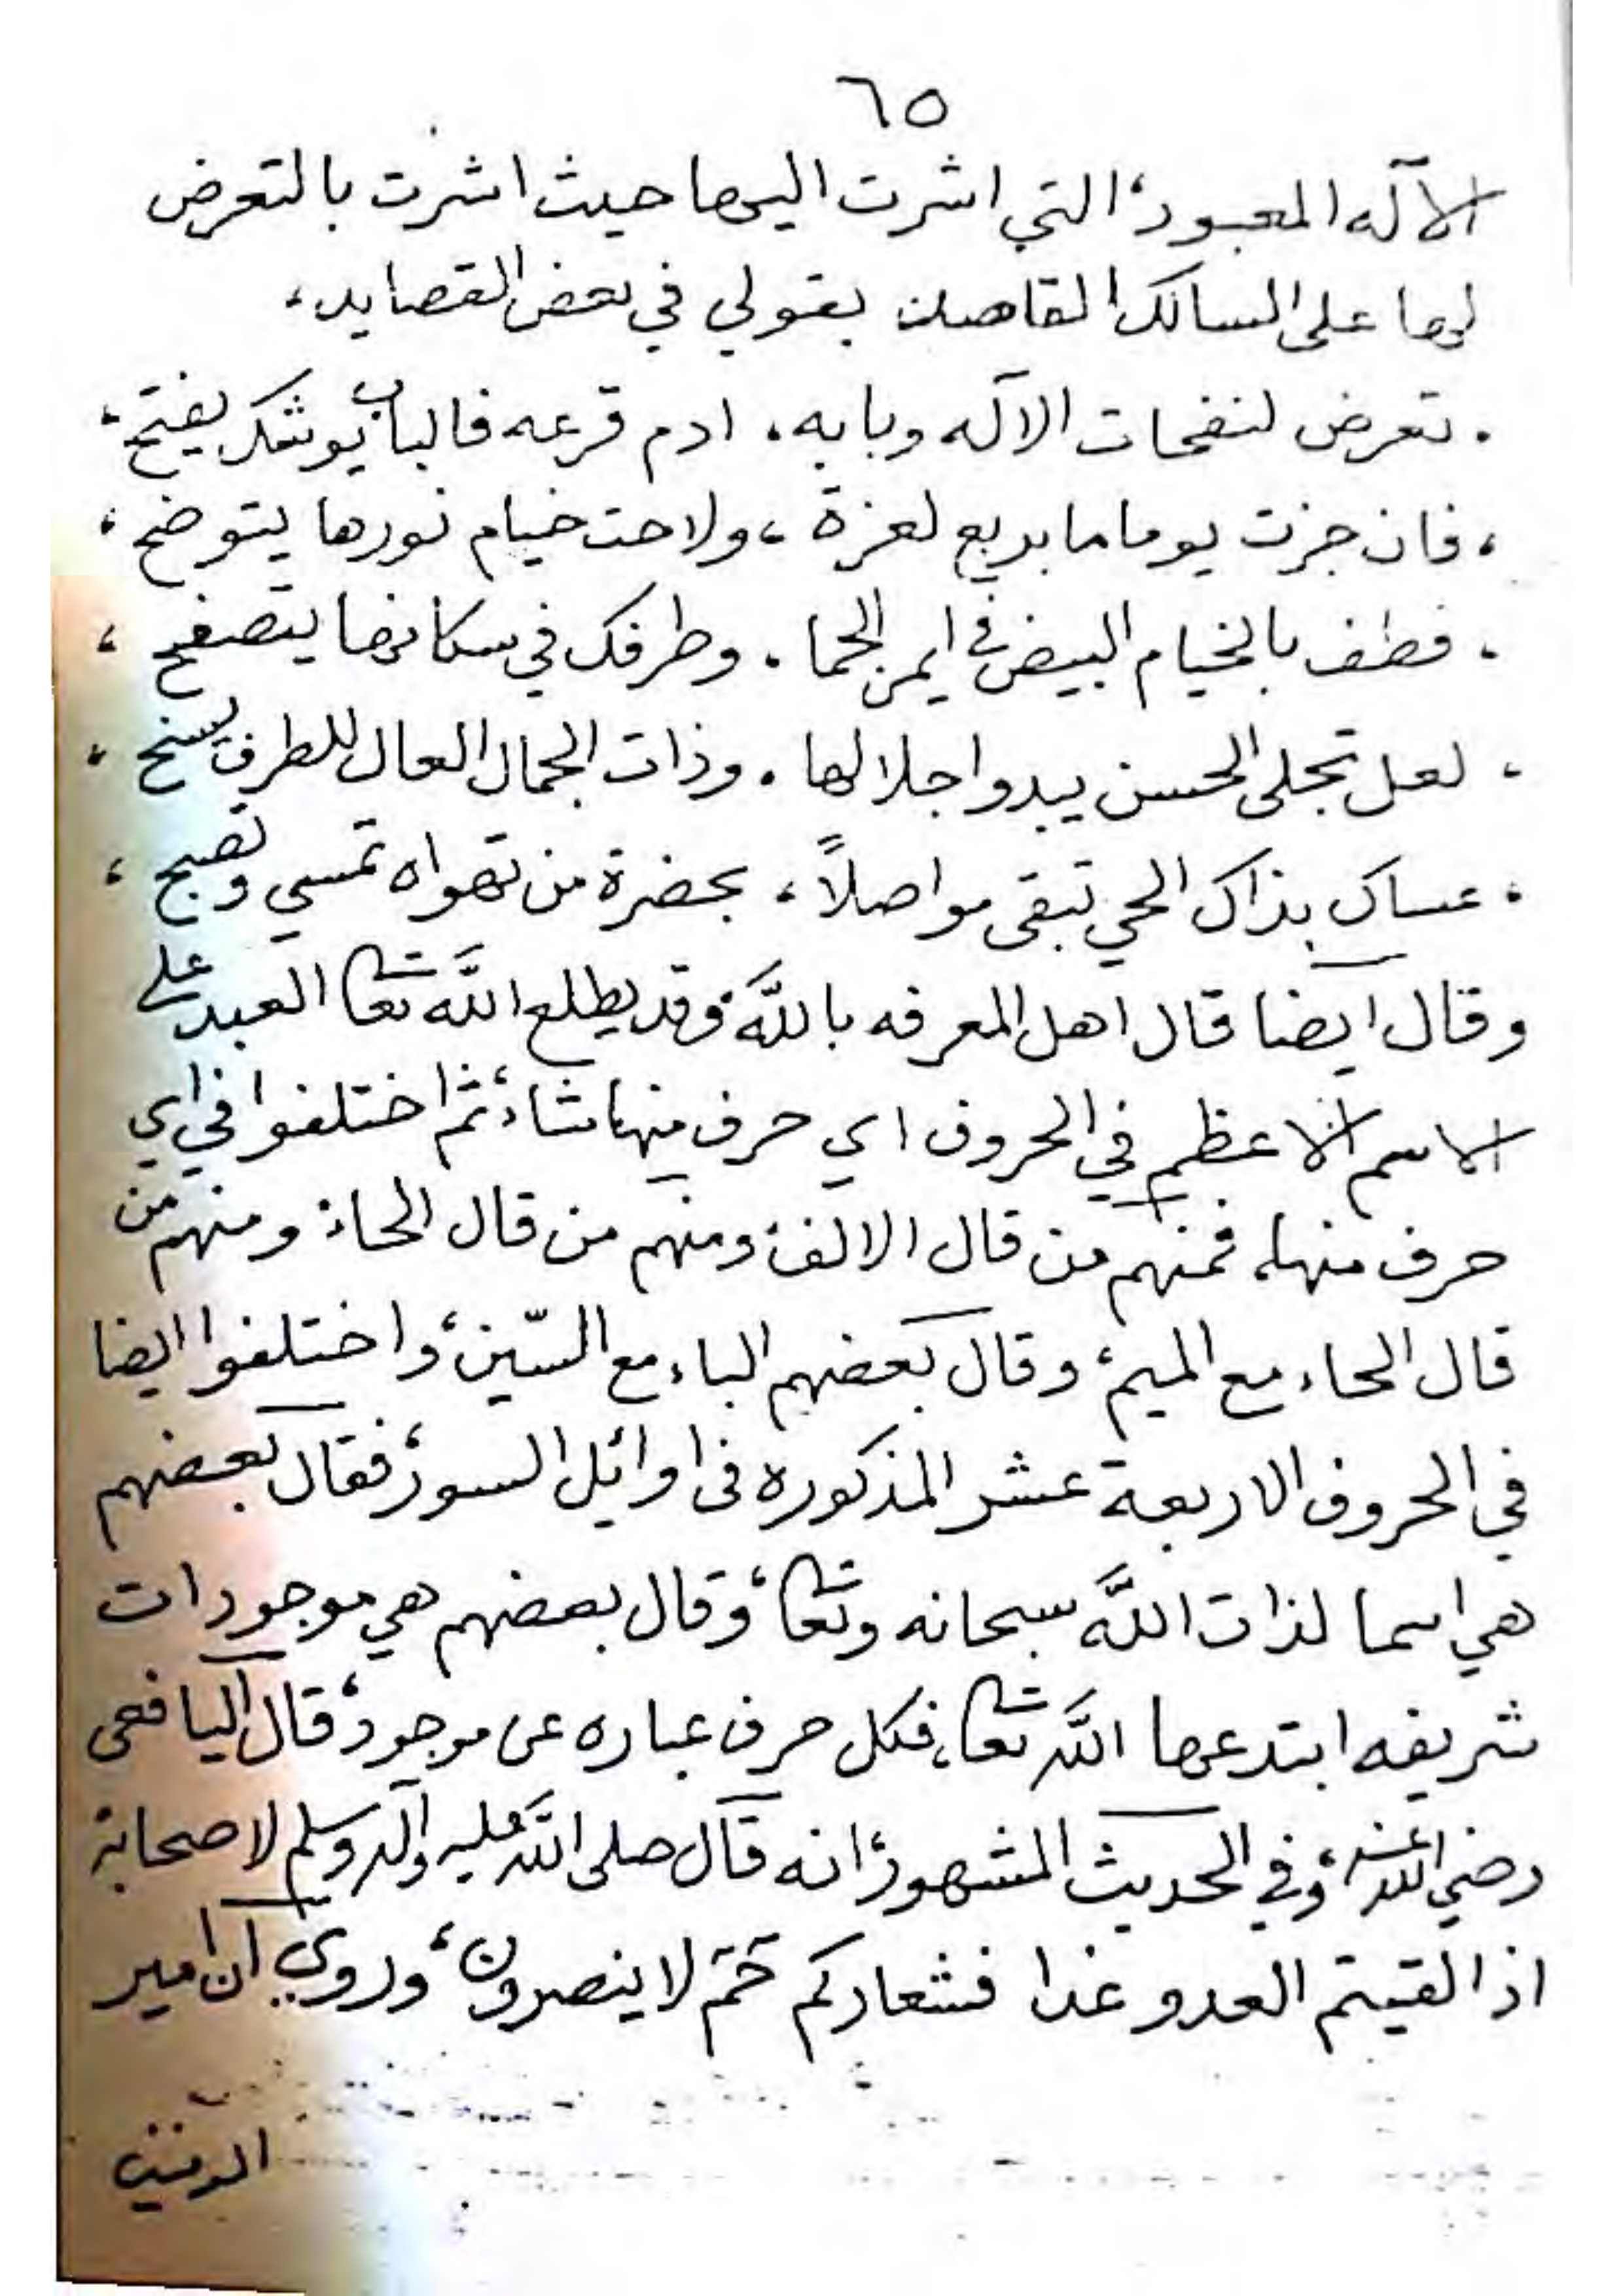 ٦٥
الآله المعبود، التي اشرت اليها حيث اشرت بالتعرض
لها على السالك القاصد بقولي في بعض القصايد،
. تعرض لنفحات الآله وبابه، ادم قرعه فالباب يوشك يفتح،
، فان جزت يوما ما بربع لعزة ، ولاحت خيام نورها يتوضح ،
، فطف بالخيام البيض في ايمن الحما . وطرفك في سكانها يتصفح ،
، لعل تجلى الحسن يبدو اجلالها . وذات الجمال العال للطرف يسنح ،
، عساك بذاك الحي تبقى مواصلاً ، بحضرة من تهواه تمسي وتصبح ،
وقال ايضا قال اهل المعرفه باللَّه، وقد يطلع اللَّه تعا العبد على
الاسم الاعظم في الحروف اي حرف منها شاء، ثم اختلفوا في اي
حرف منها، فمنهم من قال الالف، ومنهم من قال الحاء، ومنهم من
قال الحاء مع الميم، وقال بعضهم الباء مع السّين، واختلفوا ايضا
في الحروف الاربعة عشر المذكوره فى اوائل السور، فقال بعضهم
هي اسما لذات اللَّه سبحانه وتعا، وقال بعضهم هي موجودات
شريفه ابتدعها اللَّه تعا، فكل حرف عباره عن موجود، قال اليافعى
رضي الله عنه، وفي الحديث المشهور، انه قال صلى اللَّه عليه وآله وسلم لاصحابه
اذا لقيتم العدو غدا فشعاركم حٓمٓ لا ينصرون، وروي ان امير